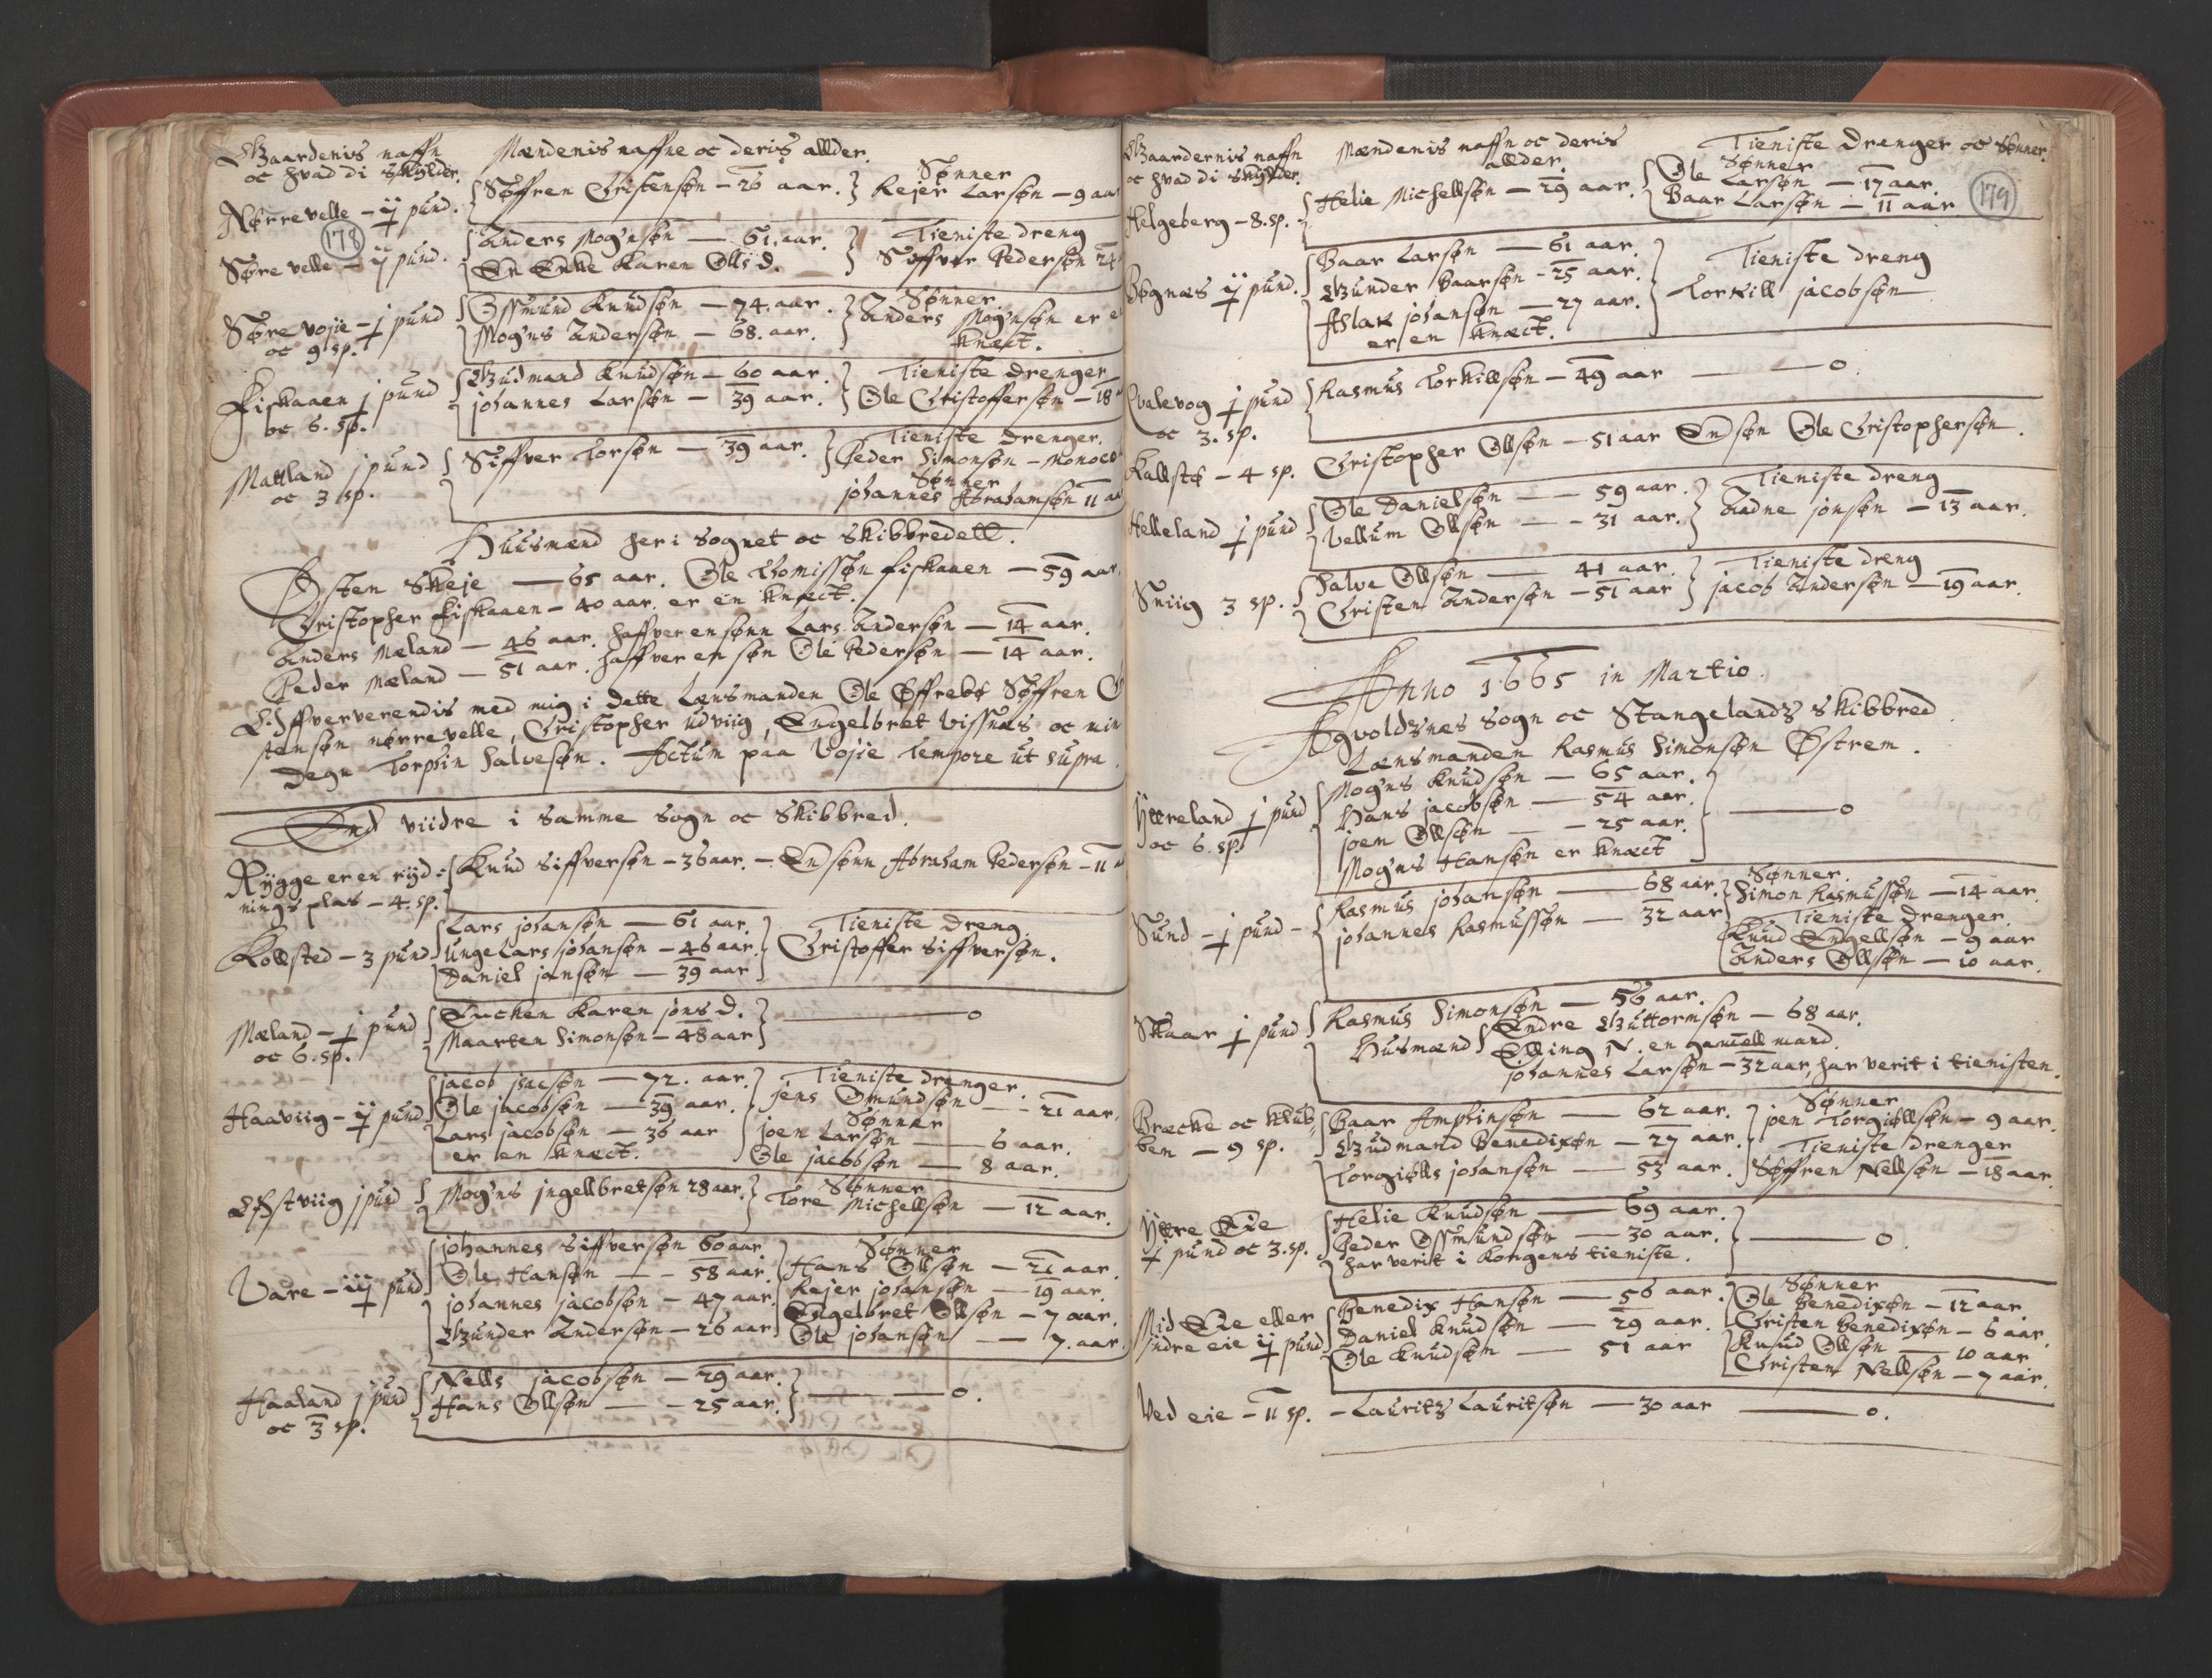 Gaardenis naffn
oc hvad di skylder.
Mændenis naffne oc deris allder.
Nørrevelle - ij pund.
Søffren Christensøn - 26 aar.
Sønner
Rejer Larsøn - 9 aar
178
Søre velle - ij pund.
Anders Mog'nsøn - 61. aar.
En Enke Karen Olls d.
Tieniste dreng
Siffver Pedersøn 24
Søre vojie - j pund
oc 9 sp.
Ossmund Knudsøn - 74. aar.
Mog'ns Andersøn - 68. aar.
Sønner.
Anders Mog'nsøn er e
knect.
Fiskaaen j pund
oc 6. sp.
Gudmand Knudsøn - 60 aar.
johannes Larsøn - 39 aar.
Tieniste drenger
Ole Christoffersøn - 18
Mattland j pund
oc 3 sp.
Siffver Torsøn - 39 aar.
Tieniste drenger.
Peder Simonsøn - Monoc
Sønner
johannes Abrahamsøn 11 aa
Huusmænd her i sognet oc skibbredett.
Østen Skeje - 65 aar. Ole Thomissøn fiskaaen - 59 aar.
Christopher fiskaaen - 40 aar. er en knect.
Anders Mæland - 46 aar. haffver en sønn Lars Andersøn - 14 aar.
Peder Mæland - 51 aar. haffver en søn Ole Pedersøn - 14 aar.
Offververendis med mig i dette Lænsmanden Ole Offrebø Søffren C
stensøn nørrevelle, Christopher udviig, Engelbret vissnæs oc min
Degn Torphin Salvesøn. Actum paa Vojie Tempore ut supra.
End viidre i samme sogn oc Skibbred.
Rygge er en ryd-
nings plas - 4. sp.
Knud Siffversøn - 36 aar. - En sønn Abraham Pedersøn - 11
Kollsted - 3 pund
Lars johansøn - 61 aar.
unge Lars johansøn - 46 aar.
Daniel jonsøn - 39 aar
Tieniste dreng.
Christoffer Siffversøn.
Mæland - j pund
oc 6. sp.
Encken Karen jons d.
Maarten Simonsøn - 48 aar
0
Haaviig - ij pund
jacob jsacsøn - 72. aar.
Ole jacobsøn - 39 aar.
Lars jacobsøn - 36 aar
er en knect.
Tieniste drenger.
jens Omundsøn - 21 aar.
Sønner
joen Larsøn - 6 aar.
Ole jacobsøn - 8 aar.
Østviig j pund
Mog'ns jngellbretsøn 28 aar.
Sønner
Tore Michellsøn - 12 aar.
Vare - iij pund
johannes Siffversøn 60 aar.
Ole Hansøn - 58 aar.
johannes jacobsøn - 47 aar.
Gunder Andersøn - 26 aar
Sønner
Hans Ollsøn - 21 aar.
Rejer johansøn - 19 aar.
Engelbret Ollsøn - 7 aar.
Ole johansøn - 7. aar.
Haaland j pund
oc 3 sp.
Nells jacobsøn - 29 aar.
Hans Ollsøn - 25 aar.
0.
Gaardernis naffn
oc hvad di skylder.
Mændenis naffn oc deris
allder.
Tieniste Drenger oc Sønner.
179
Helgeberg - 8. sp.
Helie Michellsøn - 29 aar.
Sønner
Ole Larsøn - 17 aar.
Baar Larsøn - 11 aar
Bøgnæs ij pund.
Baar Larsøn - 61 aar.
Gunder Baarsøn - 25 aar.
Aslak johansøn - 27 aar.
er en knect.
Tieniste dreng
Torkill jacobsøn
Qvalevog j pund
oc 3. sp.
Rasmus Torkillsøn - 49 aar - 0.
Kallstø - 4 sp. Christopher Ollsøn - 51 aar En søn Ole Christophersøn.
Helleland j pund
Ole Danielsøn - 59 aar.
Vellum Ollsøn - 31 aar.
Tieniste dreng
Aadne jonsøn - 13 aar.
Sniig 3 sp.
Salve Ollsøn - 41 aar.
Christen Andersøn - 51 aar
Tieniste dreng
jacob Andersøn - 19 aar.
Anno 1665 in Martio.
Agvoldsnæs Sogn oc Stangelandz skibbred.
Lænsmanden Rasmus Simonsøn Østrem.
Yttreland j pund
oc 6. sp.
Mog'ns Knudsøn - 65 aar.
Hans jacobsøn - 54 aar.
joen Ollsøn - 25 aar.
Mog'ns Hansøn er knect
0
Sund - j pund -
Rasmus johansøn - 68 aar.
johannes Rasmussøn - 32 aar
Sønner.
Simon Rasmussøn - 14 aar.
Tieniste drenger.
Knud Engellsøn - 9 aar
Anders Ollsøn - 10 aar.
Skaar j pund
Rasmus Simonsøn - 56 aar.
Husmænd
Endre Guttormsøn - 68 aar.
Elling N. en gamell mand.
johannes Larsøn - 32 aar, har verit i tienisten.
Bræcke oc Klub-
ben - 9 sp.
Baar Amphinsøn - 62 aar.
Gudmand Benedixøn - 27 aar.
Torgiølls johansøn - 53 aar.
Sønner
jen Torgiøllsøn - 9 aar.
Tieniste drenger
Søffren Nellsøn - 18 aar.
Yttre Eie
j pund oc 3. sp.
Helie Knudsøn - 69 aar.
Peder Ossmundsøn - 30 aar.
har verit i kongens tieniste.
0.
Mid Eie eller
Indre eie ij pund
Benedix Hansøn - 56 aar.
Daniel Knudsøn - 29 aar.
Ole Knudsøn - 51 aar
Sønner
Ole Benedixøn - 12 aar
Christen Benedixøn - 6 aar.
Knud Ollsøn - 10 aar
Christen Nellsøn - 7 aar.
Ved eie - 11 sp. - Lauritz Lauritsøn - 30 aar - 0.